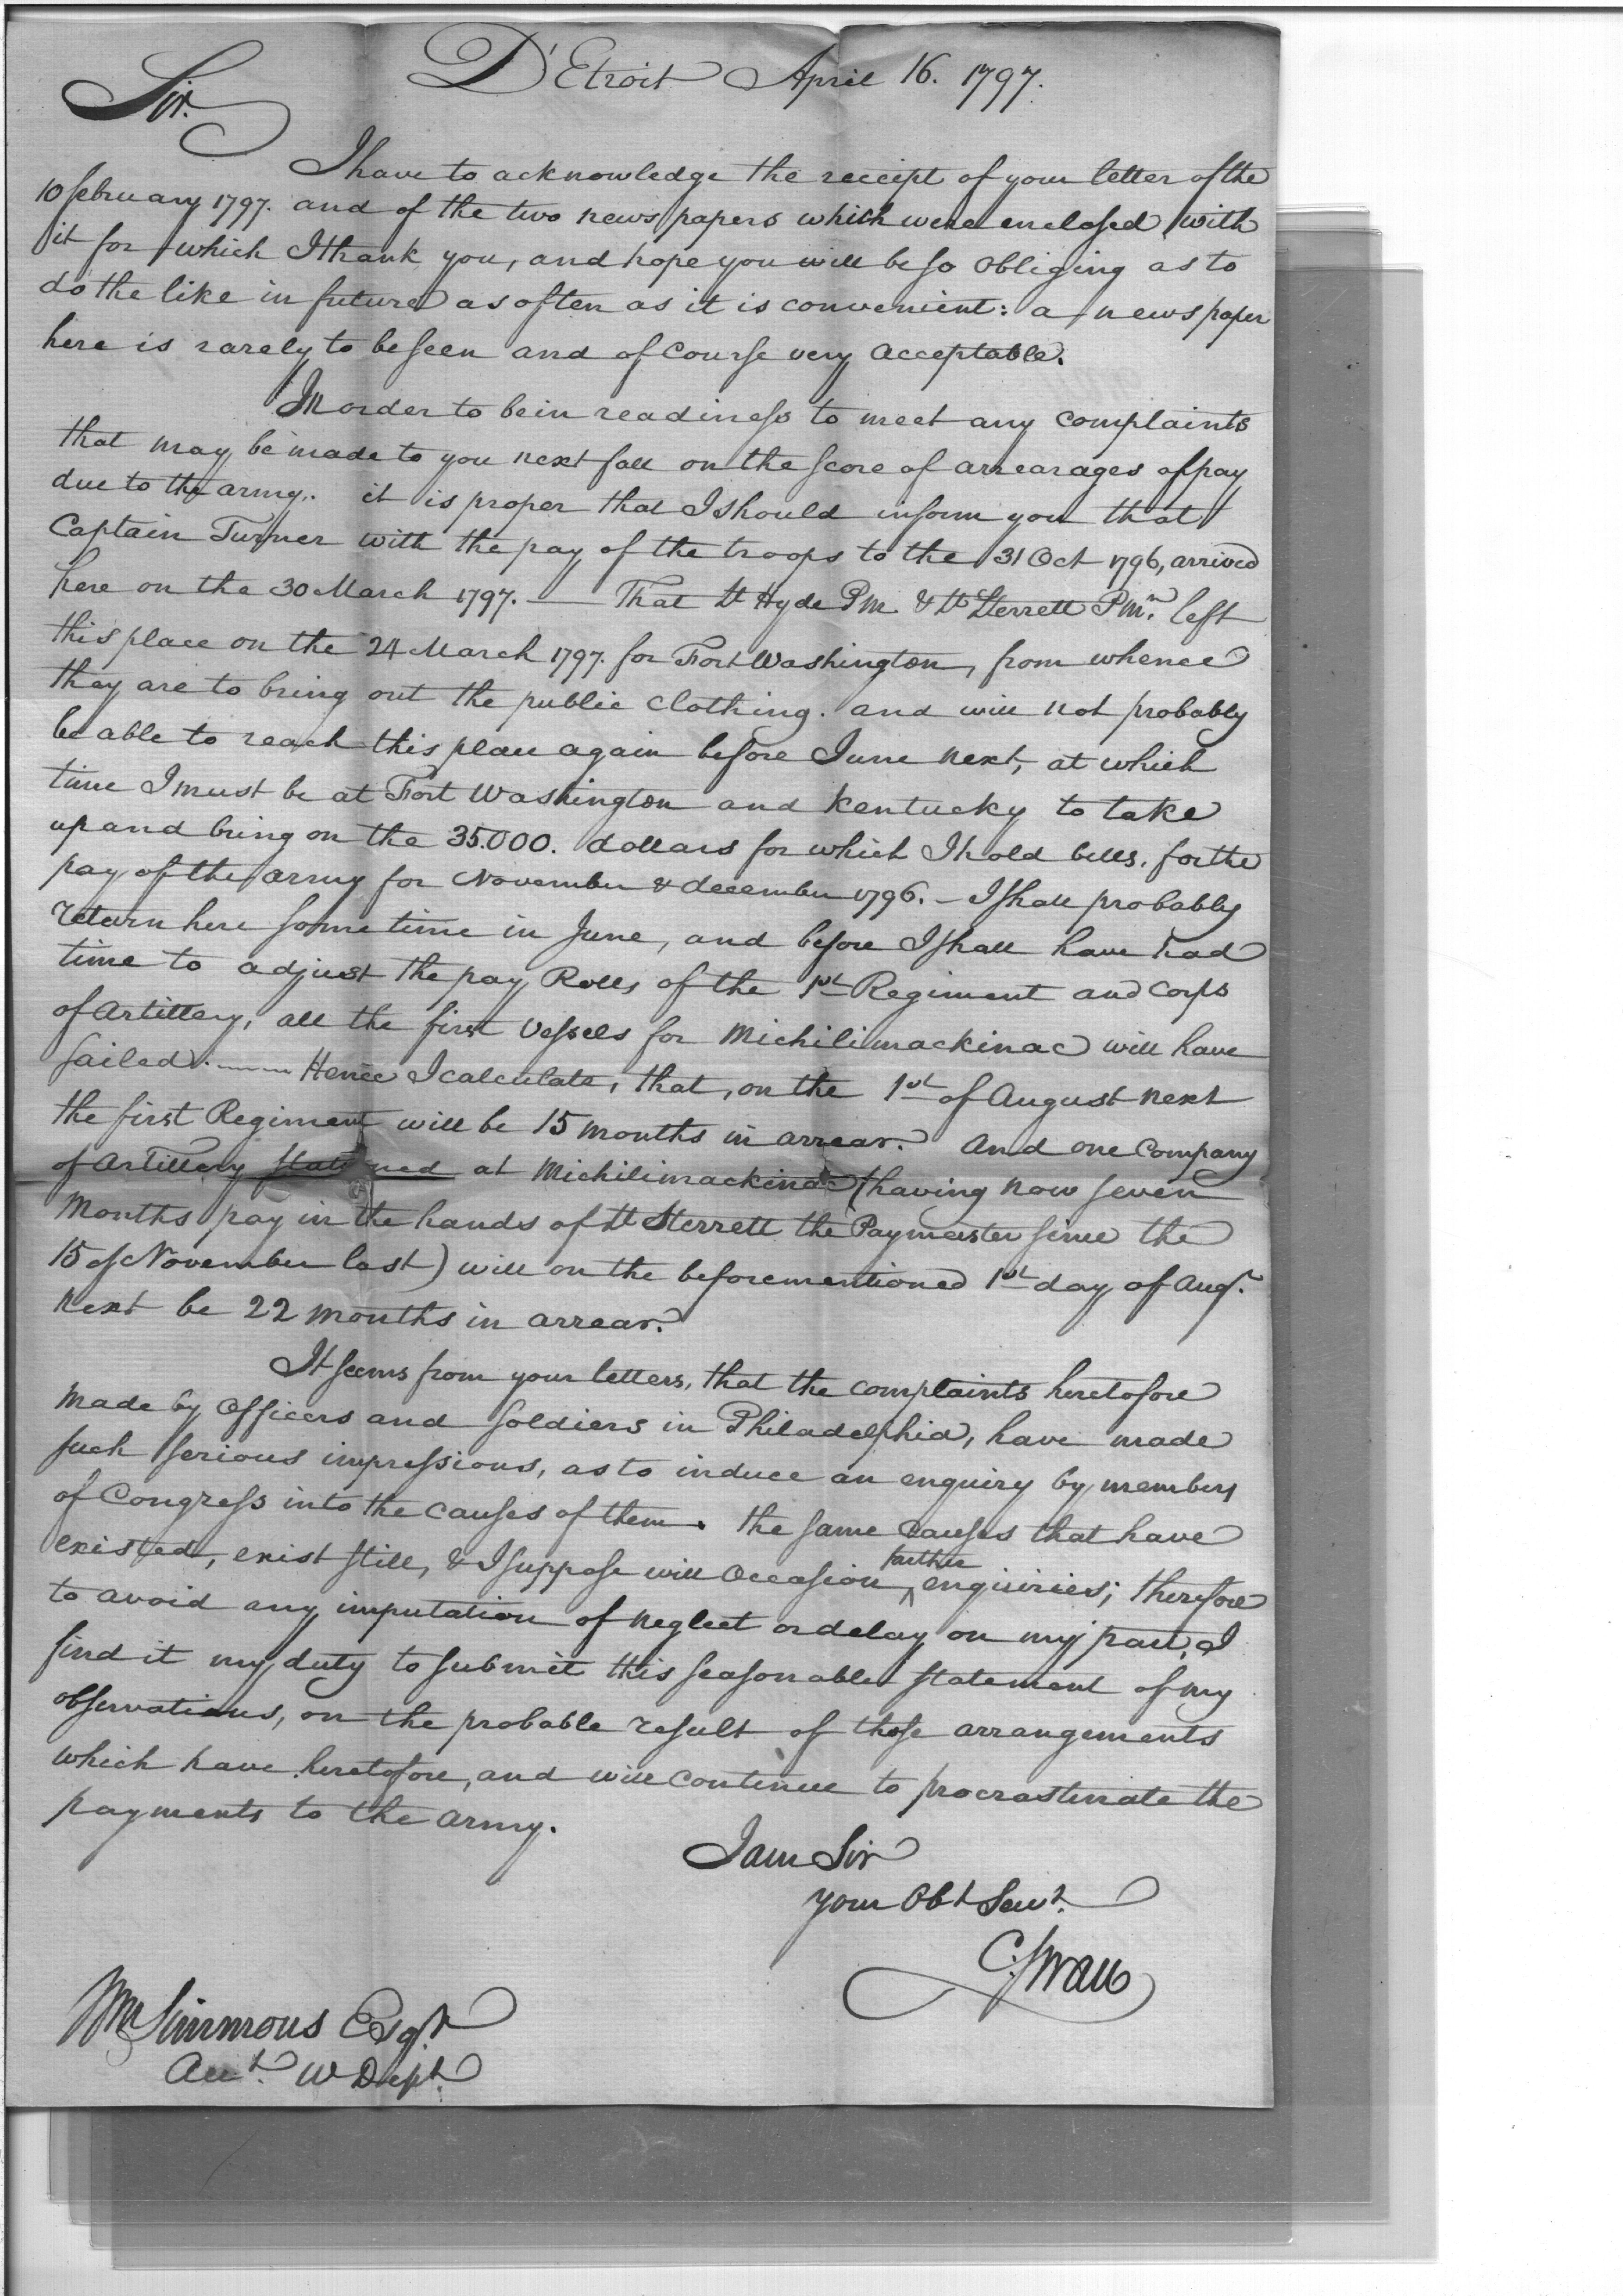 D'Etroit April 16. 1797.
Sir.
I have to acknowledge the receipt of your letter of the
10 february 1797. and of the two news papers which were enclosed with
it for which I thank you, and hope you will be so obliging as to
do the like in future as often as it is convenient: a news paper
here is rarely to be seen and of course very acceptable.
In order to be in readiness to meet any complaints
that may be made to you next fall on the score of arrearages of pay
due to the army. it is proper that I should inform you that
Captain Turner with the pay of the troops to the 31 Oct 1796, arrived
here on the 30 March 1797. — That Lt Hyde P.M. & Lt Sterrett P.Mr. left
this place on the 24 March 1797. for Fort Washington, from whence
they are to bring out the public clothing. and will not probably
be able to reach this place again before June next, at which
time I must be at Fort Washington and Kentucky to take
up and bring on the 35.000. dollars for which I hold bills, for the
pay of the army for November & december 1796. - I shall probably
return here some time in June, and before I shall have had
time to adjust the pay Rolls of the 1st Regiment and Corps
of Artillery, all the first Vessels for Michilimackinac will have
sailed. — Hence I calculate, that, on the 1st of August next
the first Regiment will be 15 months in arrear. And one Company
of Artillery stationed at Michilimackinac (having now seven
Months pay in the hands of Lt Sterrett the Paymaster since the
15 of November last) will on the beforementioned 1st day of Augt.
next be 22 months in arrear.
It seems from your letters, that the complaints heretofore
made by Officers and Soldiers in Philadelphia, have made
such serious impressions, as to induce an enquiry by members
of Congress into the causes of them. the same causes that have
existed, exist still, & I suppose will occasion ^farther enquiries; therefore
to avoid any imputation of neglect or delay on my part, I
find it my duty to submit this seasonable statement of my
observations, on the probable result of those arrangements
which have heretofore, and will continue to procrastinate the
payments to the army.
I am Sir
your Obt Servt.
C. Swan
Wm Simmons Esqr.
Acct. W Dept.